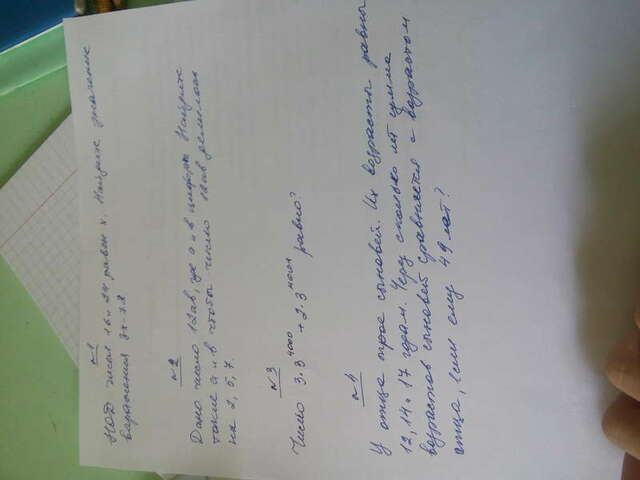 №1
НОД чисел 16 и 24 равен x. Найдите значение
выражения 3x-7.2
№2
Дано число 12ав, где а и в цифры. Найдите
такие а и в чтобы число 12ав делилось
на 2, 5, 7.
№3
Число 3·3⁴⁰⁰⁰ + 2·3⁴⁰⁰¹ равно?
№4
У отца трое сыновей. Их возрасты равны
12, 14 и 17 годам. Через сколько лет сумма
возрастов сыновей сравняется с возрастом
отца, если ему 49 лет?